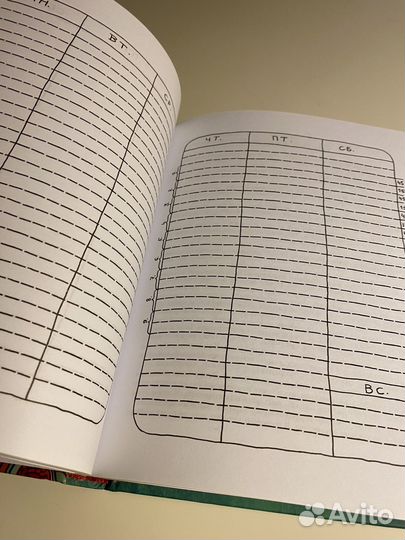 ПН.
ВТ.
СР
ЧТ.
ПТ.
СБ.
ВС.
Avito